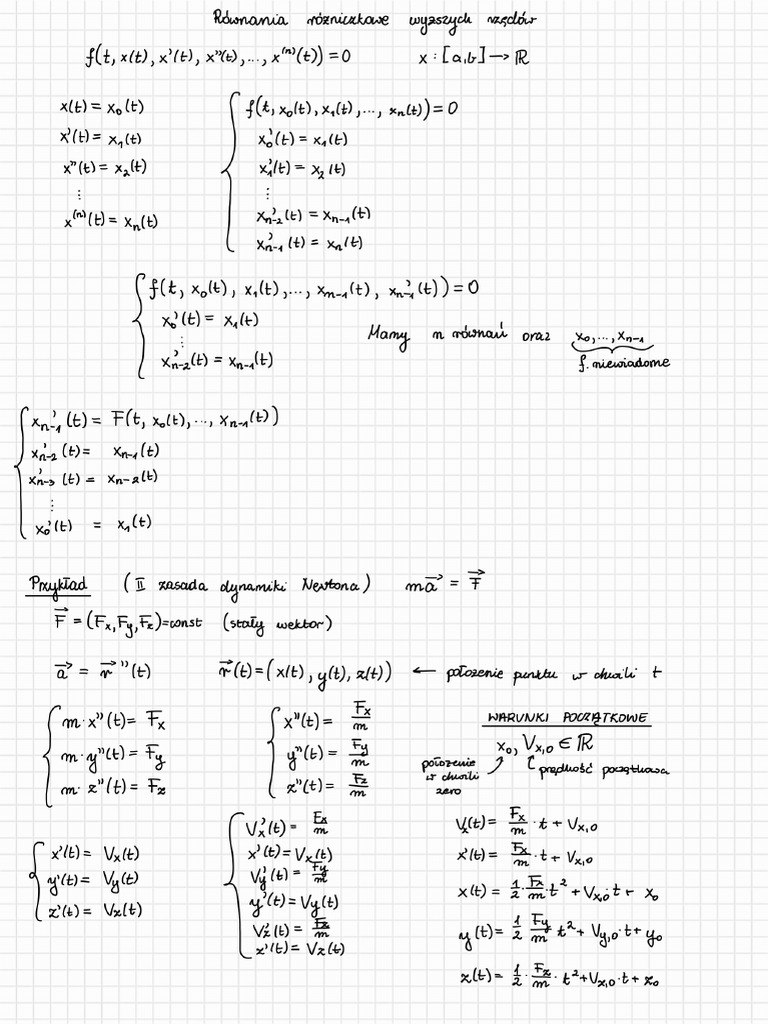 Równania różniczkowe wyższych rzędów
f(t, x(t), x'(t), x''(t), ..., x⁽ⁿ⁾(t)) = 0    x : [a,b] → ℝ
x(t) = x₀(t)
x'(t) = x₁(t)
x''(t) = x₂(t)
⋮
x⁽ⁿ⁾(t) = xₙ(t)
{ f(t, x₀(t), x₁(t), ..., xₙ(t)) = 0
x₀'(t) = x₁(t)
x₁'(t) = x₂(t)
⋮
xₙ₋₂'(t) = xₙ₋₁(t)
xₙ₋₁'(t) = xₙ(t)
{ f(t, x₀(t), x₁(t), ..., xₙ₋₁(t), xₙ₋₁'(t)) = 0
x₀'(t) = x₁(t)
⋮
xₙ₋₂'(t) = xₙ₋₁(t)
Mamy n równań oraz x₀, ..., xₙ₋₁
f. niewiadome
{ xₙ₋₁'(t) = F(t, x₀(t), ..., xₙ₋₁(t))
xₙ₋₂'(t) = xₙ₋₁(t)
xₙ₋₃'(t) = xₙ₋₂(t)
⋮
x₀'(t) = x₁(t)
Przykład (II zasada dynamiki Newtona) ma⃗ = F⃗
F⃗ = (Fx, Fy, Fz) = const (stały wektor)
a⃗ = r⃗''(t)    r⃗(t) = (x(t), y(t), z(t)) ← położenie punktu w chwili t
{ m · x''(t) = Fx
m · y''(t) = Fy
m · z''(t) = Fz
{ x''(t) = Fx/m
y''(t) = Fy/m
z''(t) = Fz/m
WARUNKI POCZĄTKOWE
x₀, Vx,0 ∈ ℝ
położenie
w chwili
zero
prędkość początkowa
{ x'(t) = Vx(t)
y'(t) = Vy(t)
z'(t) = Vz(t)
{ Vx'(t) = Fx/m
x'(t) = Vx(t)
Vy'(t) = Fy/m
y'(t) = Vy(t)
Vz'(t) = Fz/m
z'(t) = Vz(t)
Vx(t) = Fx/m · t + Vx,0
x'(t) = Fx/m · t + Vx,0
x(t) = 1/2 · Fx/m · t² + Vx,0 · t + x₀
y(t) = 1/2 Fy/m t² + Vy,0 · t + y₀
z(t) = 1/2 · Fz/m · t² + Vz,0 · t + z₀